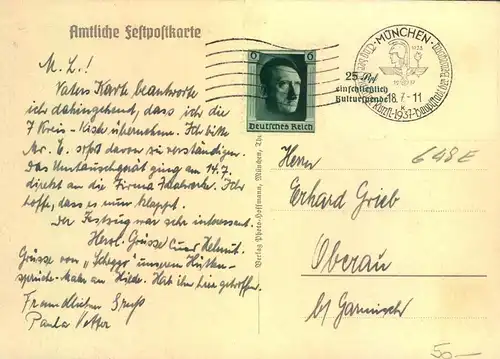 Amtliche Festpostkarte
M. L.!
Vaters Karte beantworte
ich dahingehend, dass ich die
7 Kreis-Kiste übernehme. Ich bitte
Mr. E. sofort davon zu verständigen.
Das Umtauschgerät ging am 14.7.
direkt an die Firma ab. Ich
hoffe, dass es nun klappt.
Der Festzug war sehr interessant.
Herzl. Grüsse Euer Helmut.
Grüsse von "Scheppo" unserem Hütten-
an Hilde. Hab ihn hier getroffen.
Freundlichen Gruß
Paula Vetter
Verlag Photo-Hoffmann, München
6
Deutsches Reich
25 Rpf
einschließlich
Kulturspende
MÜNCHEN
18.7.-11
1937
Herrn
Erhard Grieb
Oberau
b/ Garmisch
648E
50.-